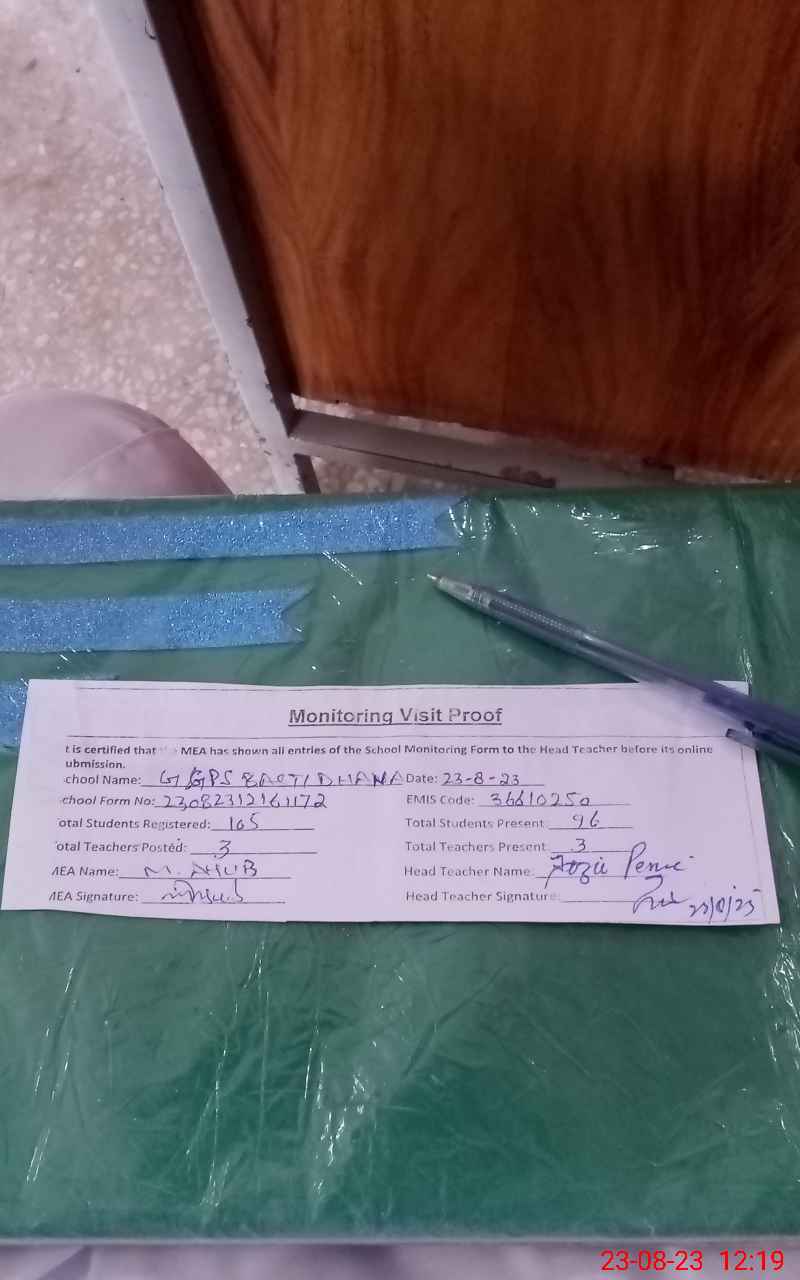 Monitoring Visit Proof
t is certified that the MEA has shown all entries of the School Monitoring Form to the Head Teacher before its online
ubmission.
chool Name: GGPS BASTI DHANA Date: 23-8-23
chool Form No: 23082312161172 EMIS Code: 36610250
otal Students Registered: 165 Total Students Present: 96
otal Teachers Posted: 3 Total Teachers Present: 3
MEA Name: M. AYUB Head Teacher Name:
MEA Signature: Head Teacher Signature:
23-08-23 12:19